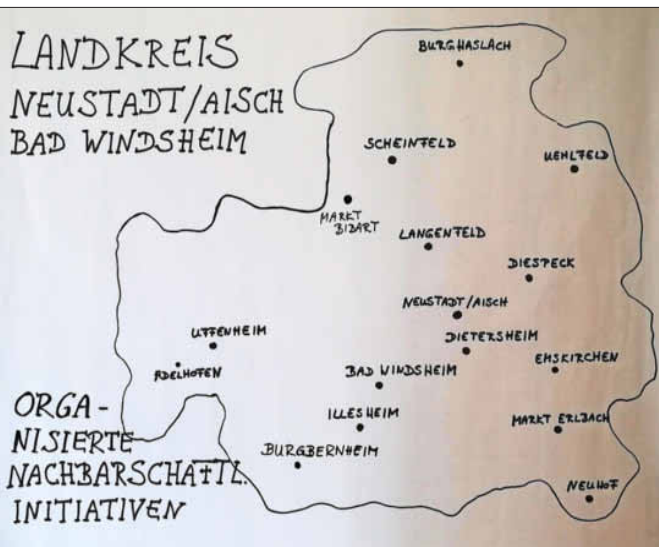 LANDKREIS
NEUSTADT/AISCH
BAD WINDSHEIM
BURGHASLACH
SCHEINFELD
UEHLFELD
MARKT
BIBART
LANGENFELD
DIESPECK
NEUSTADT/AISCH
UFFENHEIM
DIETERSHEIM
ADELHOFEN
BAD WINDSHEIM
EMSKIRCHEN
ILLESHEIM
MARKT ERLBACH
BURGBERNHEIM
NEUHOF
ORGA-
NISIERTE
NACHBARSCHAFTL.
INITIATIVEN